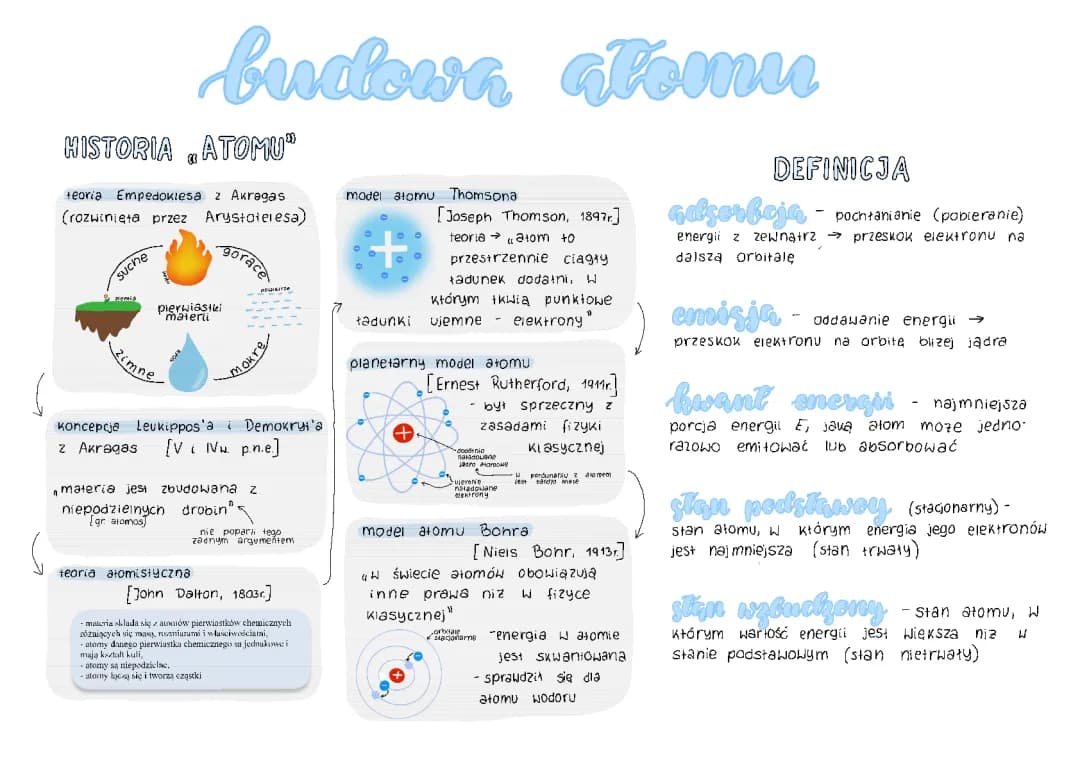 budowa atomu
HISTORIA „ATOMU"
teoria Empedoklesa z Akragas
(rozwinięta przez Arystotelesa)
suche
gorące
ziemia
powietrze
pierwiastki
materii
woda
zimne
mokre
koncepcja Leukippos'a i Demokryt'a
z Akragas [V i IV w. p.n.e.]
„materia jest zbudowana z
niepodzielnych drobin"
[gr. atomos]
nie poparli tego
żadnym argumentem
teoria atomistyczna
[John Dalton, 1803r.]
- materia składa się z atomów pierwiastków chemicznych
różniących się masą, rozmiarami i właściwościami,
- atomy danego pierwiastka chemicznego są jednakowe i
mają kształt kuli,
- atomy są niepodzielne,
- atomy łączą się i tworzą cząstki
model atomu Thomsona
[Joseph Thomson, 1897r.]
teoria → „atom to
przestrzennie ciągły
ładunek dodatni, w
którym tkwią punktowe
ładunki ujemne - elektrony"
planetarny model atomu
[Ernest Rutherford, 1911r.]
- był sprzeczny z
zasadami fizyki
klasycznej
dodatnio
naładowane
jądro atomowe
w porównaniu z atomem
jest bardzo małe
ujemnie
naładowane
elektrony
model atomu Bohra
[Niels Bohr, 1913r.]
„w świecie atomów obowiązują
inne prawa niż w fizyce
klasycznej"
orbitale
stacjonarne
-energia w atomie
jest skwantowana
- sprawdził się dla
atomu wodoru
DEFINICJA
adsorbcja - pochłanianie (pobieranie)
energii z zewnątrz → przeskok elektronu na
dalszą orbitalę
emisja - oddawanie energii →
przeskok elektronu na orbitę bliżej jądra
kwant energii - najmniejsza
porcja energii E, jaką atom może jedno-
razowo emitować lub absorbować
stan podstawowy (stacjonarny) -
stan atomu, w którym energia jego elektronów
jest najmniejsza (stan trwały)
stan wzbudzony - stan atomu, w
którym wartość energii jest większa niż w
stanie podstawowym (stan nietrwały)